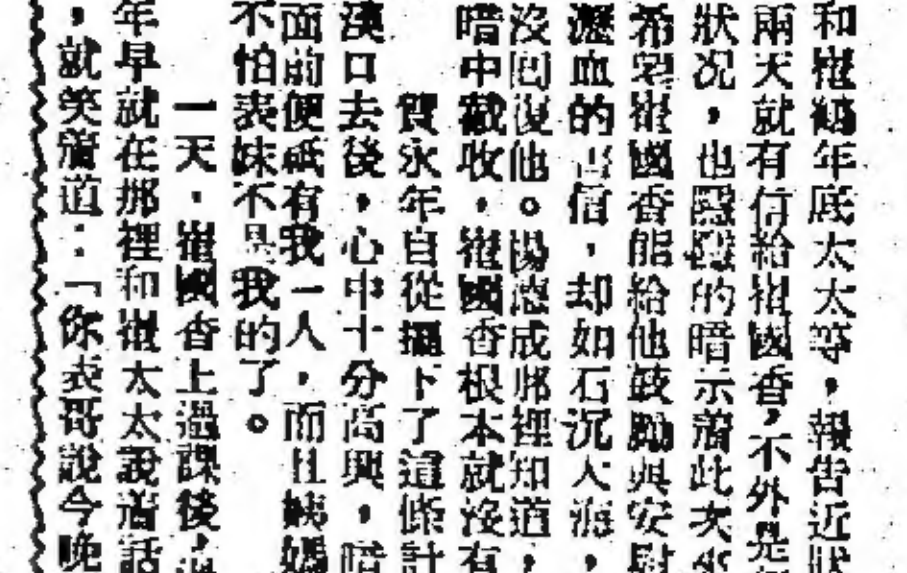 和崔鶴年底太太等，報告近狀
兩天就有信給崔國香，不外是
狀况，也隱隱的暗示着此次
希望崔國香能給他鼓勵與安慰
瀝血的書信，却如石沉大海，
沒回復他。楊德成那裡知道，
暗中截收，崔國香根本就沒有
賀永年自從擺下了這條計
漢口去後，心中十分高興，暗
面前便祇有我一人，而且姨媽
不怕表妹不是我的了。
一天，崔國香上過課後，
年早就在那裡和崔太太說着話
，就笑着道：「你表哥說今晚